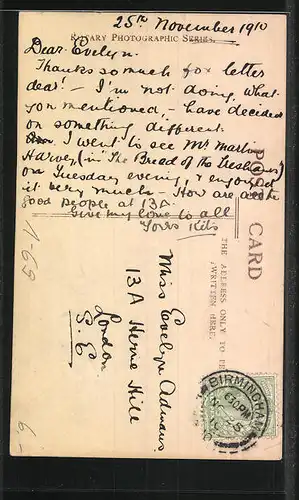 25th November 1910
ROTARY PHOTOGRAPHIC SERIES.
Dear Evelyn.
Thanks so much for letter
dear! – I'm not doing, what
you mentioned, – have decided
on something different.
I went to see Mr Martin
Harvey, (in "The Breed of the Treshams")
on Tuesday evening, & enjoyed
it very much – How are all the
good people at 13A.
Give my love to all
Yours
POST CARD
THE ADDRESS ONLY TO BE
WRITTEN HERE.
Miss Evelyn Adams
13A Herne Hill
London
S.E
BIRMINGHAM
1-69
6-